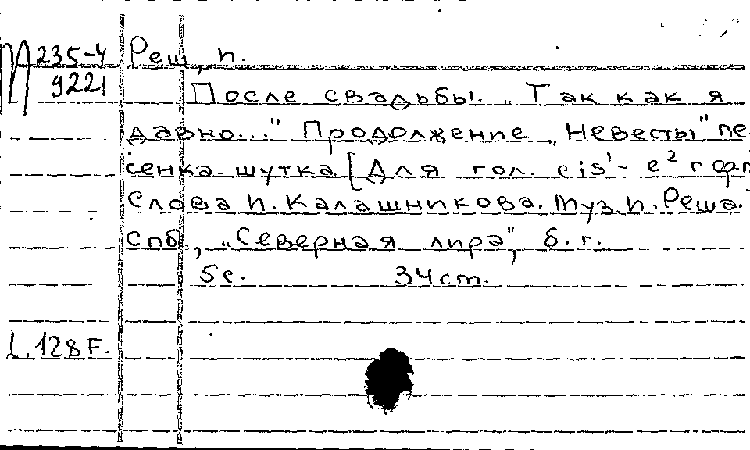 П 235-4 Реш, П.
9221 После свадьбы. „Так как я
давно..." Продолжение „Невесты" пе
сенка шутка [Для гол. cis¹- e² с фп
Слова П. Калашникова. Муз. П. Реша.
Спб, „Северная лира", б. г.
5с. 34 cm.
L.128F.